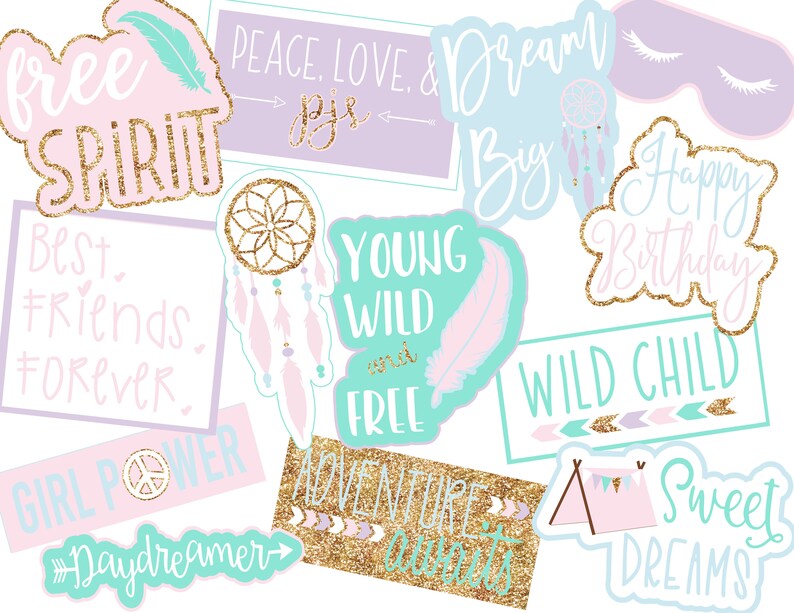 free
SPIRIT
PEACE, LOVE, &
pjs
Dream
Big
Happy
Birthday
Best
Friends
Forever
YOUNG
WILD
and
FREE
WILD CHILD
GIRL POWER
Daydreamer
ADVENTURE
awaits
Sweet
DREAMS